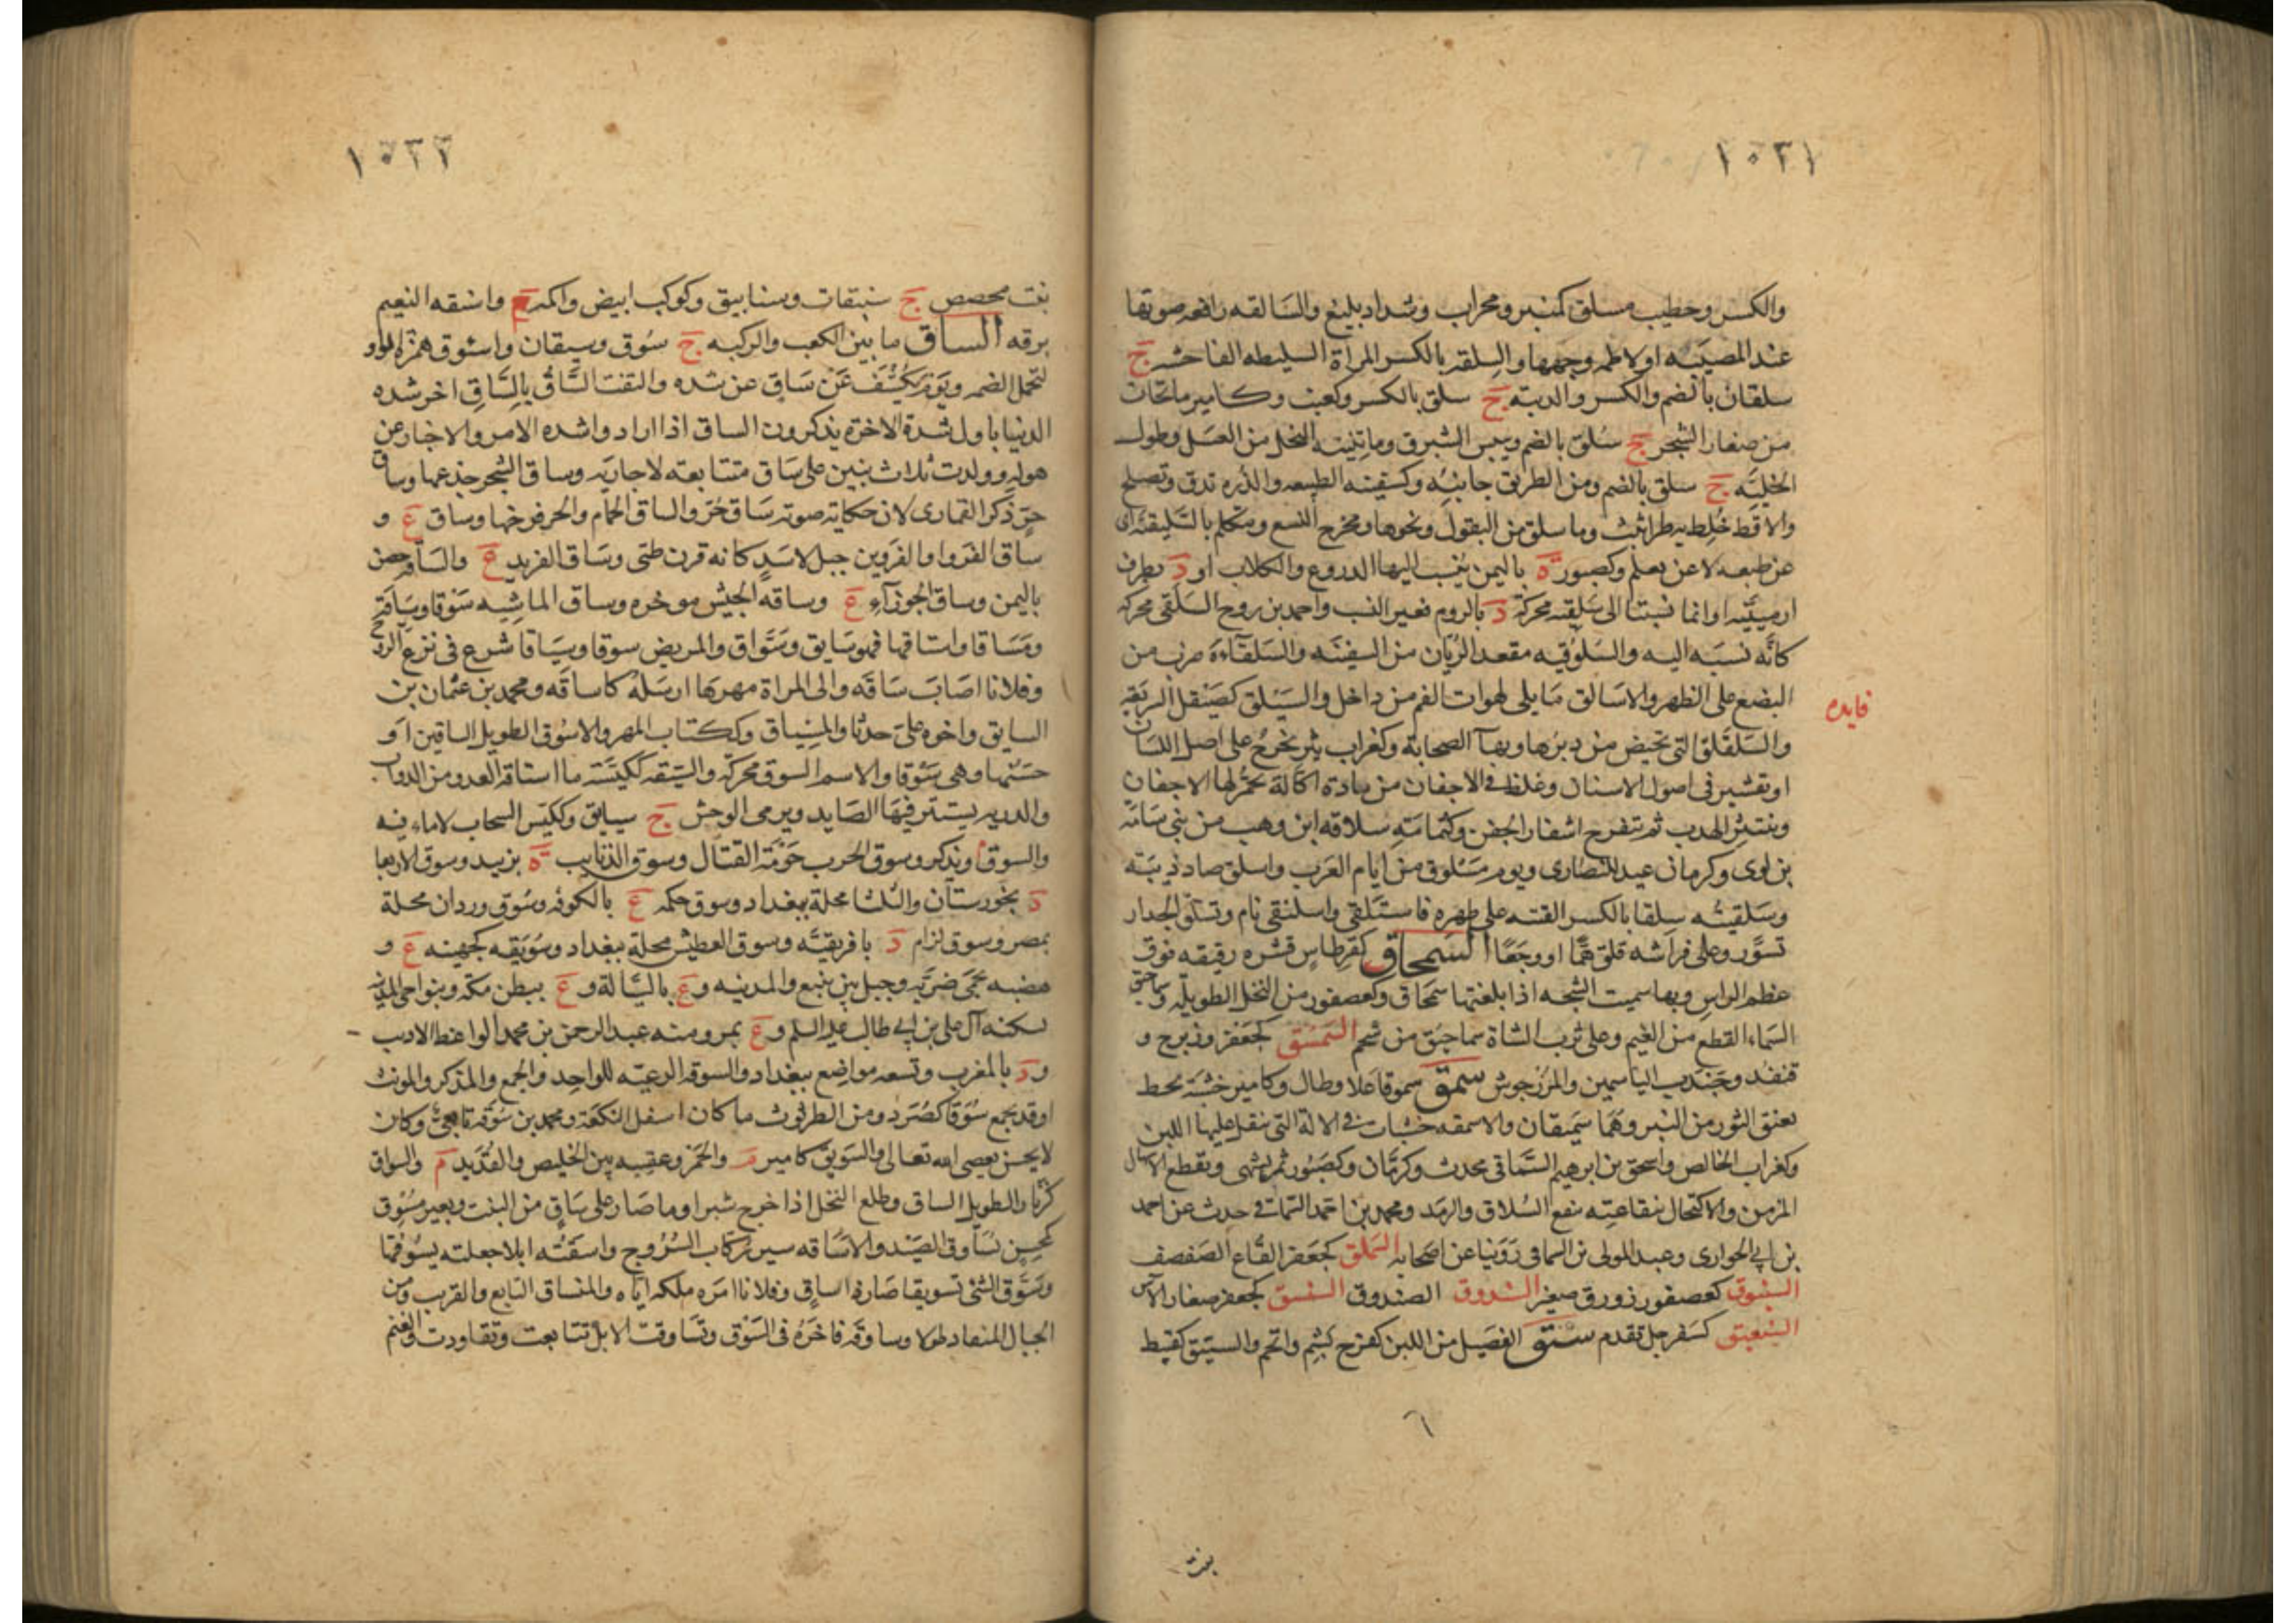 ١٠٣١
والكسر وخطيب مسلق كمنبر ومحراب وشداد بليغ والسالقه رافعه صوتها
عند المصيبه او لاطمه وجهها والسلقه بالكسر المراة السليطه الفاحشه ج
سلقان بالضم والكسر والدبة ج سلق بالكسر وكعنب وكامير ما تحات
من صغار الشجر ج سلق بالضم ويبس الشبرق وما تبنيه النخل من العسل وطول
الخلية ج سلق بالضم ومن الطريق جانبه وكسفينه الطبيعه والذره تدق وتصلح
والاقط خلط به طراثيث وما سلق من البقول ونحوها ومخرج النسع ومتكلم بالسليقه اى
عن طبعه لا عن تعلم وكصبور ة باليمن ينسب اليها الدروع والكلاب او د بطرف
ارمينيه او انما نسبتا الى سلقيه محركة د بالروم فغير النسب واحمد بن روح السلقى محركه
كانه نسبه اليه والسلوقيه مقعد الربان من السفينه والسلقاءة ضرب من
البضع على الظهر والاسالق ما يلى لهوات الفم من داخل والسيلق كصيقل السريعه
فايده
والسلقلق التى تحيض من دبرها وبهآ الصخابة وكغراب بثر يخرج على اصل اللسان
او تقشير فى اصول الاسنان وغلظ فى الاجفان من مادة اكالة تحمر لها الاجفان
وينتثر الهدب ثم تتقرح اشفار الجفن وكثمامة سلاقه ابن وهب من بنى سامة
بن لوى وكرمان عيد للنصارى ويوم مسلوق من ايام العرب واسلق صاد ذيبة
وسلقيته سلقا بالكسر القيته على ظهره فاستلقى واسلنقى نام وتسلق الجدار
تسور وعلى فراشه قلق هما او وجعا السمحاق كقرطاس قشره رقيقه فوق
عظم الراس وبها سميت الشجه اذا بلغتها سمحاق وكعصفور من النخل الطويلة وسماحيق
السماء القطع من الغيم وعلى ثرب الشاة سماحيق من شحم السمسق كجعفر وزبرج و
قنفذ وجندب الياسمين والمرزجوش سمق سموقا علا وطال وكامير خشبة تحط
بعنق الثور من النير وهما سميقان والاسمقه خشبات فى الالة التى ينقل عليها اللبن
وكغراب الخالص واسحق بن ابرهيم السماقى محدث وكرمان وكصبور ثمر يشهى ويقطع الاسهال
المزمن والاكتحال بنقاعته ينفع السلاق والرمد ومحمد بن احمد السماقى حدث عن احمد
بن ابى الحوارى وعبد المولى بن السماقى روينا عن اصحابه السملق كجعفر القاع الصفصف
السنبوق كعصفور زورق صغير السندوق الصندوق السنسق كجعفر صغار الآس
السنعبق كسفرجل تقدم سنق الفصيل من اللبن كفرح بشم واتخم والسنيق كقبيط
بنت
١٠٣٢
بنت محصص ج سنيقات وسنانيق وكوكب ابيض واكمة م واسنقه النعيم
برقه الساق ما بين الكعب والركبه ج سوق وسيقان واسؤق همزة الواو
لتحمل الضمه ويوم يكشف عن ساق عن شده والتفت الساق بالساق اخر شده
الدنيا باول شدة الاخرة يذكرون الساق اذا اراد وا شده الامر والاخبار عن
هوله وولدت ثلاث بنين على ساق متتابعه لا جاريه وساق الشجر جذعها وساق
حر ذكر القمارى لان حكاية صوته ساق حر والساق الحمام والحر فرخها وساق ع و
ساق الفرو او الفروين جبل لاسد كانه قرن ظبى وساق الفريد ع والساقه حصن
باليمن وساق الجوزآء ع وساقه الجيش موخره وساق الماشيه سوقا وسياقة
ومساقا واستاقها فهو سايق وسواق والمريض سوقا وسياقا شرع فى نزع الروح
وفلانا اصاب ساقه والى المراة مهرها ارسله كاساقه ومحمد بن عثمان بن
السايق واخوه على حدثا والمنسياق وككتاب المهر والاسوق الطويل الساقين او
حسنهما وهى سوقا والاسم السوق محركة والسيقه ككيسة ما استاقه العدو من الدواب
والدريه يستتر فيها الصايد ويرمى الوحش ج سيايق وككيس السحاب لا ماء فيه
والسوق م ويذكر وسوق الحرب حومة القتال وسوق الذنايب ة بزبيد وسوق الاربعا
د بخورستان والثلثا محلة ببغداد وسوق حكمه ع بالكوفه وسوق وردان محلة
بمصر وسوق لزام د بافريقيه وسوق العطش محلة ببغداد وسويقه كجهينه ع و
هضبه بحمى ضرية وجبل بين ينبع والمدينه وع بالسيالة وع ببطن مكة وبنواحى المدينه
يسكنه آل على بن ابى طالب عليه السلم وع بمرو منه عبد الرحمن بن محمد الواعظ الاديب
ود بالمغرب وتسعه مواضع ببغداد والسوقه الرعيه للواحد والجمع والمذكر والمونث
او قد يجمع سوقا كصرد ومن الطرثوث ما كان اسفل النكعة ومحمد بن سوقه تابعى وكان
لا يحسن يعصى الله تعالى والسويق كامير م والخمر وعقبه بين الخليص والقديد م والسواق
كزنار الطويل الساق وطلع النخل اذا خرج شبرا وما صار على ساق من النبت وبعير مسوق
كمحسن يساوق الصيد والاساقه سير ركاب السروج واسقته ابلا جعلته يسوقها
وسوق الشئ تسويقا صار ذا ساق وفلانا امره ملكه اياه والمنساق التابع والقريب ومن
الجبال المنقاد طولا وساوقه فاخره فى السوق وتساوقت الابل تتابعت وتقاودت والغنم